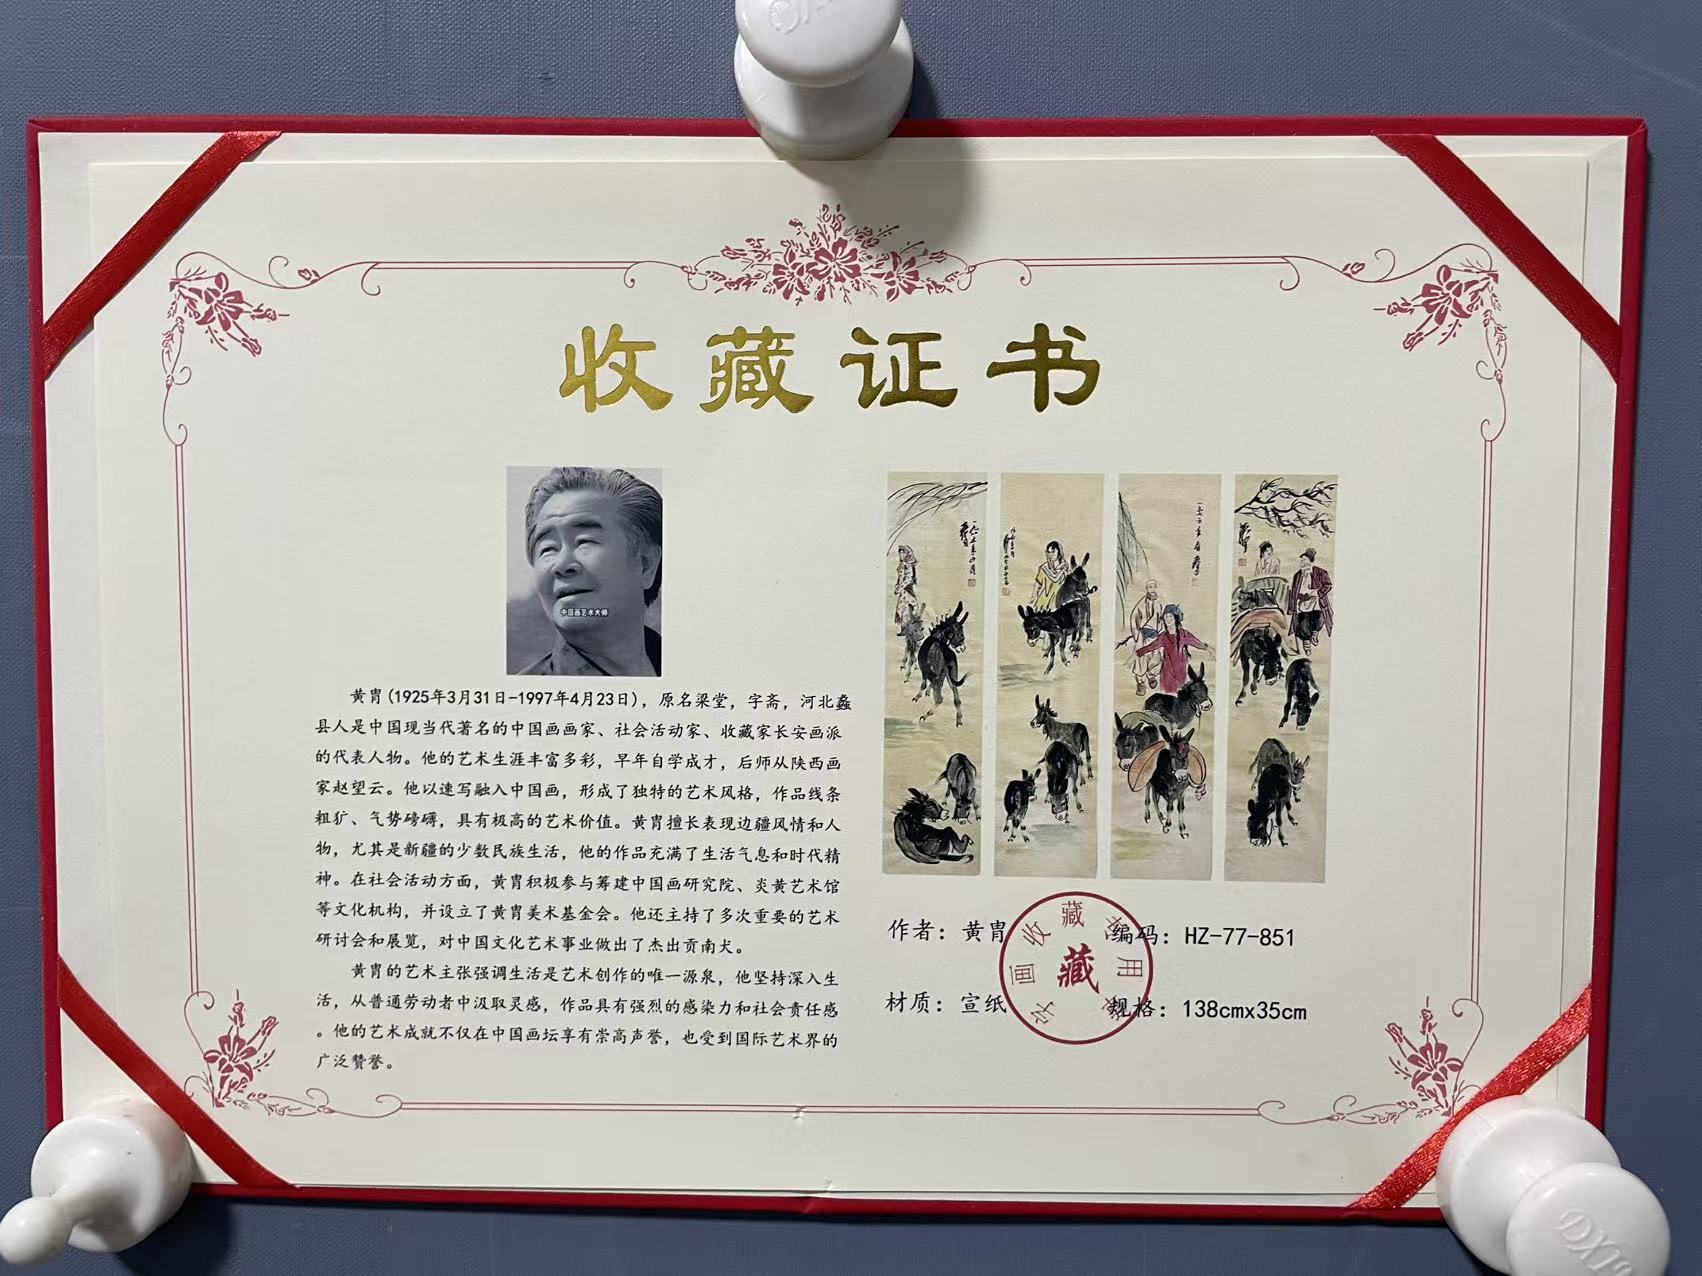 收藏证书
中国画艺术大师
黄胄(1925年3月31日-1997年4月23日)，原名梁堂，字斋，河北蠡
县人是中国现当代著名的中国画画家、社会活动家、收藏家长安画派
的代表人物。他的艺术生涯丰富多彩，早年自学成才，后师从陕西画
家赵望云。他以速写融入中国画，形成了独特的艺术风格，作品线条
粗犷、气势磅礴，具有极高的艺术价值。黄胄擅长表现边疆风情和人
物，尤其是新疆的少数民族生活，他的作品充满了生活气息和时代精
神。在社会活动方面，黄胄积极参与筹建中国画研究院、炎黄艺术馆
等文化机构，并设立了黄胄美术基金会。他还主持了多次重要的艺术
研讨会和展览，对中国文化艺术事业做出了杰出贡南犬。
黄胄的艺术主张强调生活是艺术创作的唯一源泉，他坚持深入生
活，从普通劳动者中汲取灵感，作品具有强烈的感染力和社会责任感
。他的艺术成就不仅在中国画坛享有崇高声誉，也受到国际艺术界的
广泛赞誉。
作者：黄胄 编码：HZ-77-851
材质：宣纸 规格：138cmx35cm
字画收藏专用章
藏